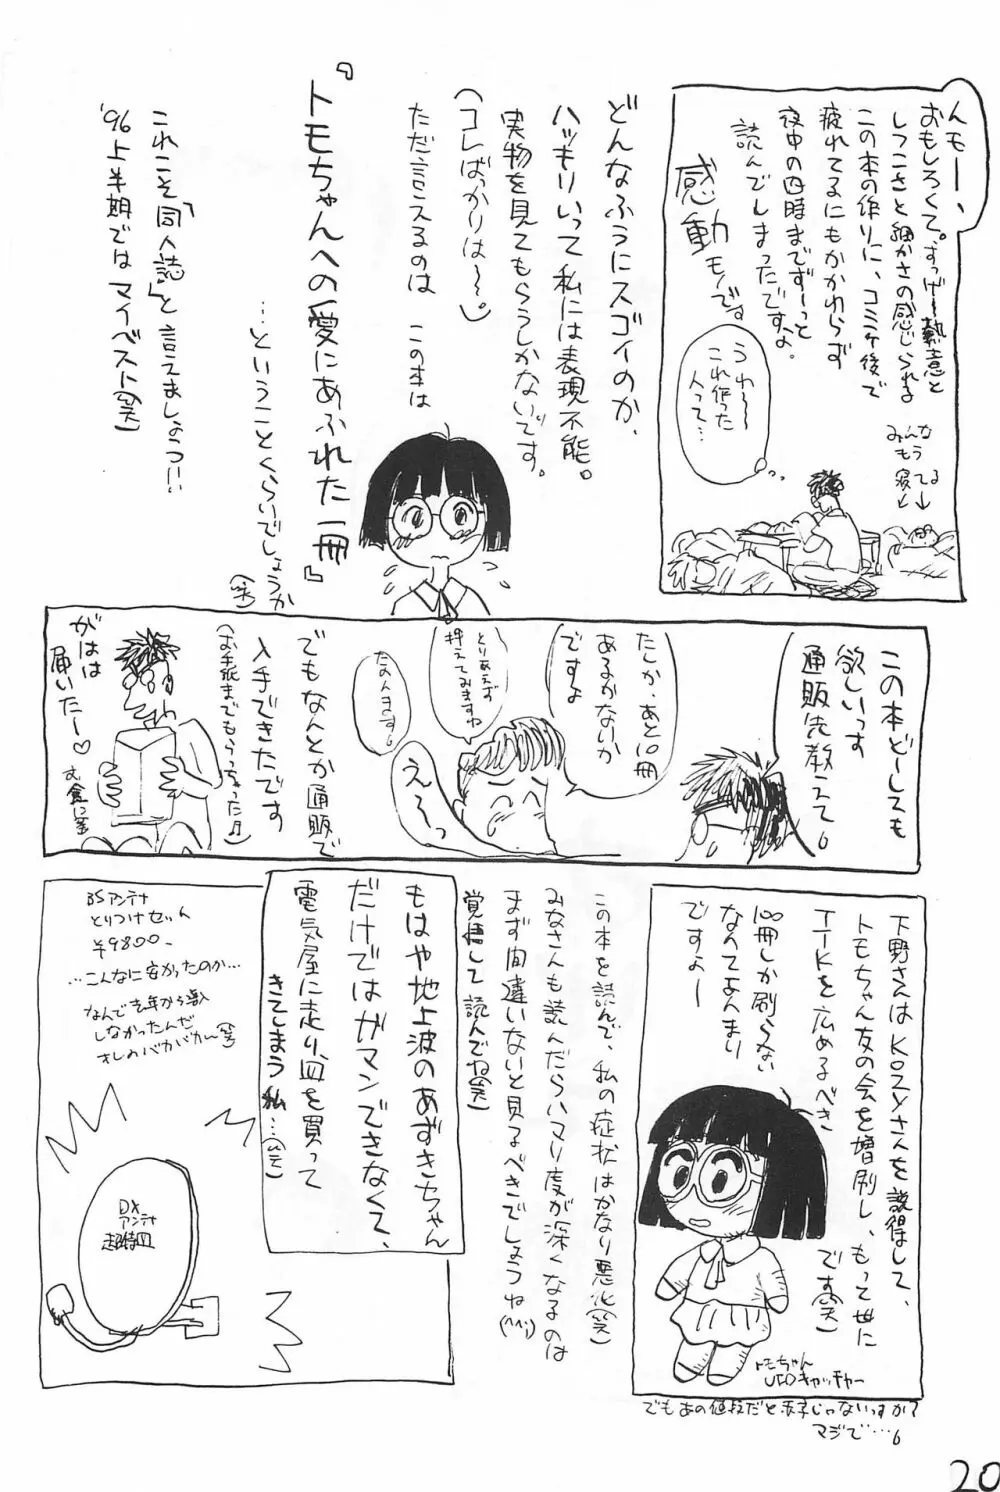 んモー、
おもしろくて。すっげー熱意と
しつこさと細かさの感じられる
この本の作りに、コミケ後で
疲れてるにもかかわらず
夜中の四時までずーっと
読んでしまったですよ。
感動モノです
うわ〜〜
これ作った
人って…
みんな
もう
寝てる
↓ ↓
どんなふうにスゴイのか、
ハッキリいって私には表現不能。
実物を見てもらうしかないです。
(コレばっかりは〜〜。)
ただ言えるのは この本は
『トモちゃんへの愛にあふれた一冊』
…ということくらいでしょうか
(笑)
これこそ「同人誌」と言えましょうっ!!
'96上半期ではマイベスト(笑)
この本どーしても
欲しいっす
通販先教えて。
たしか、あと10冊
あるかないか
ですよ
とりあえず
押えてみますね
たのんます。
え〜っ
でもなんとか通販で
入手できたです
(お手紙までもらっちゃった♫)
がはは
届いたー♡
下野さんはKOZYさんを説得して、
トモちゃん友の会を増刷し、もって世に
TTKを広めるべき
です(笑)
100冊しか刷らない
なんてあんまり
ですよー
トモちゃん
UFOキャッチャー
でもあの値段だと赤字じゃないっすか?
マジで…。
この本を読んで、私の症状はかなり悪化(笑)
みなさんも読んだらハマり度が深くなるのは
まず間違いないと見るべきでしょうね(^^;)
覚悟して読んでね(笑)
もはや地上波のあずきちゃん
だけではガマンできなくて、
電気屋に走り、皿を買って
きてしまう私…(笑)
BSアンテナ
とりつけセット
¥9800-
…こんなに安かったのか…
なんで去年から導入
しなかったんだ
オレのバカバカ〜(笑)
DX
アンテナ
超特皿
20